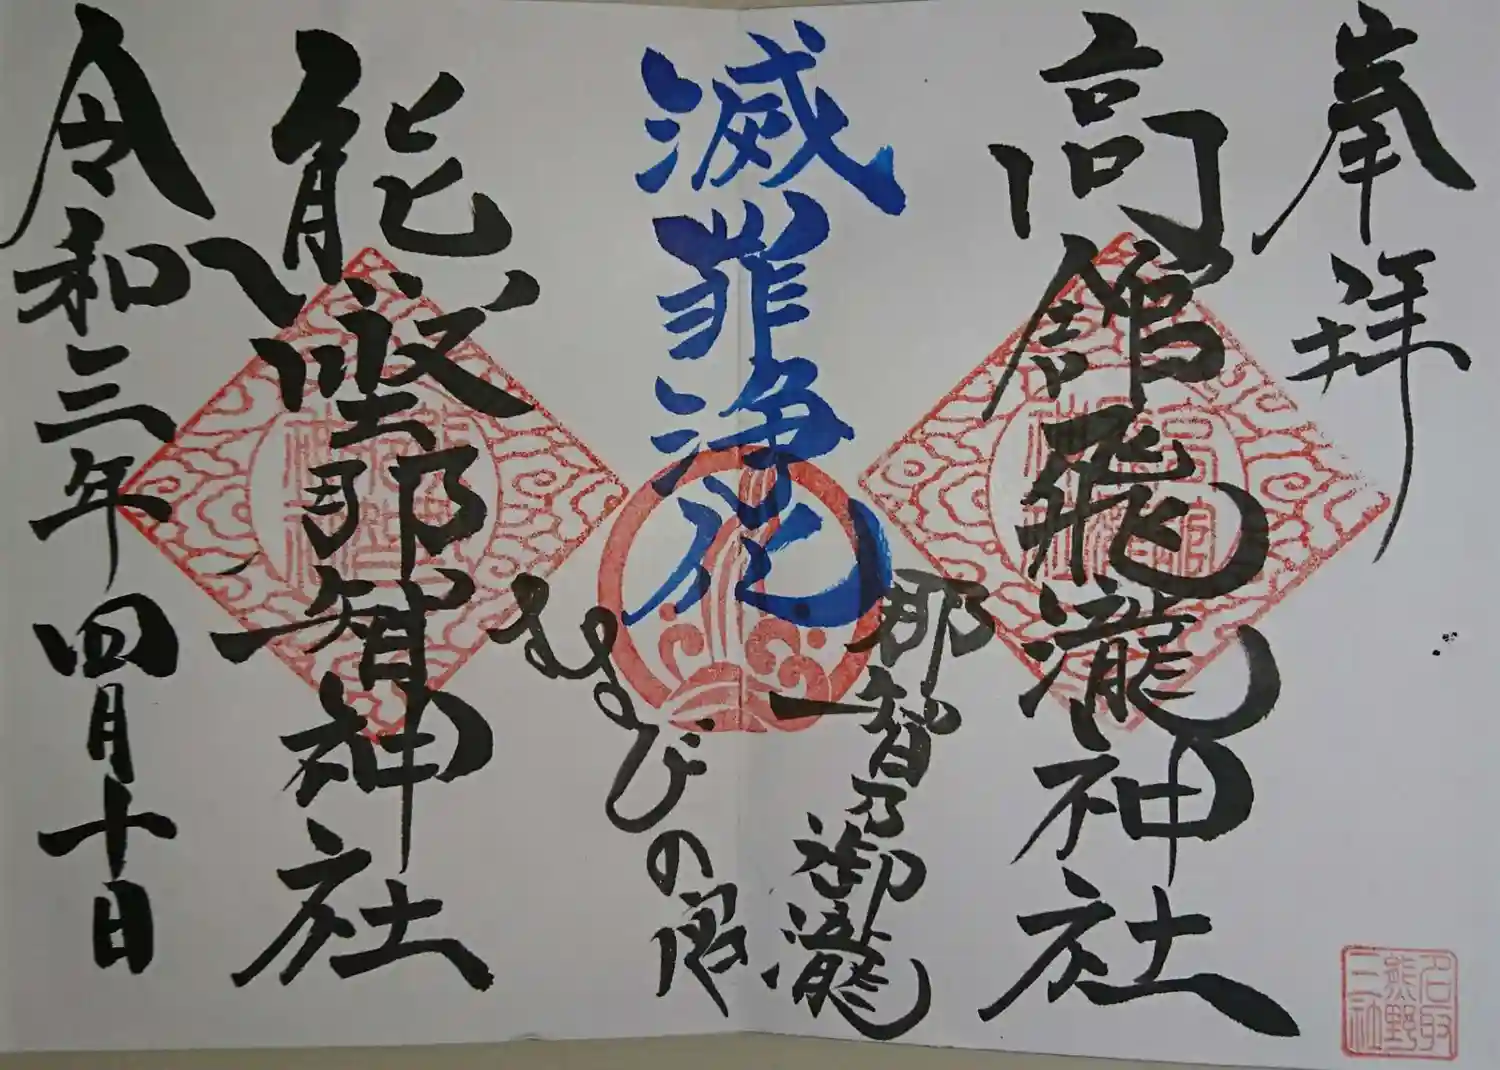 奉拝
高舘飛瀧神社
那智乃御瀧
滅罪浄化
むすびの宮
熊野那智神社
令和三年四月十日
名取
熊野
三社